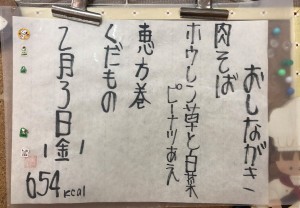 おしながき
肉そば
ホウレン草と白菜
ピーナツあえ
恵方巻
くだもの
2月3日(金)
654kcal